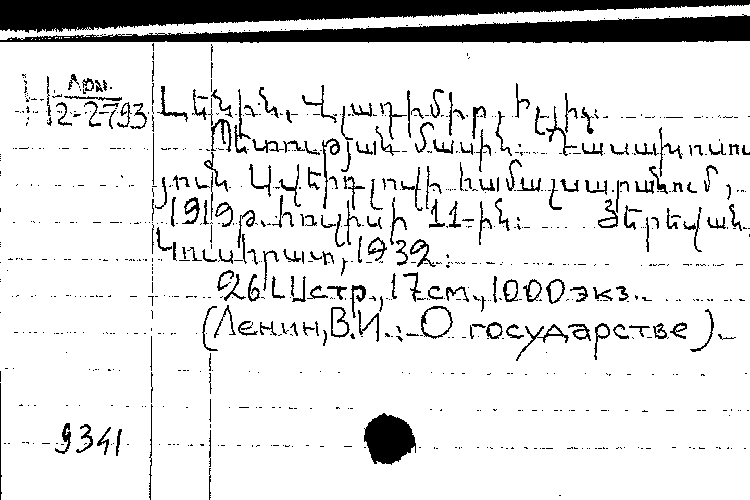 Арм.
Н 2-2793
Լենին, Վլադիմիր, Իլյիչ։
Պետության մասին։ Դասախոսու
յուն Սվերդլովի համալսարանում,
1919թ. հուլիսի 11-ին։ Յերեվան,
Կուսհրատ, 1932։
26 стр., 17см., 1000 экз..
(Ленин, В.И.: О государстве).
9341